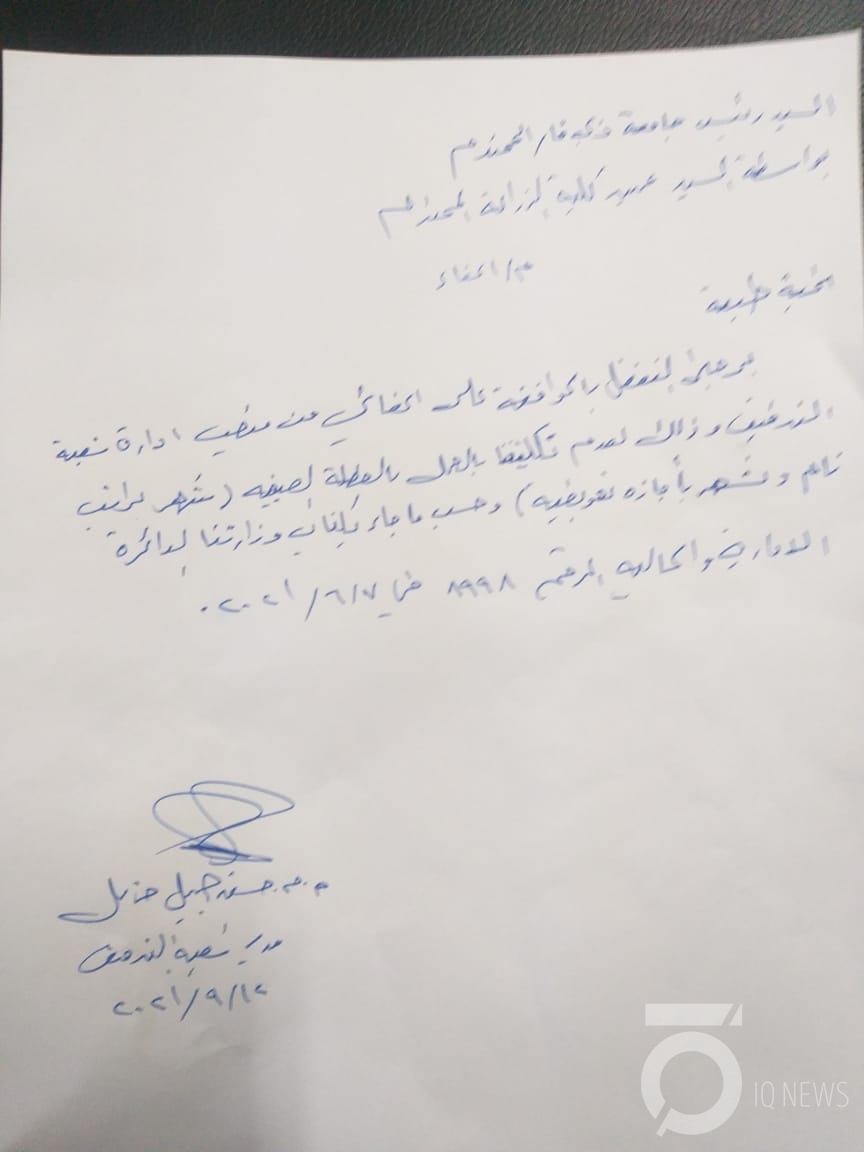 السيد رئيس جامعة ذي قار المحترم
بواسطة السيد عميد كلية الزراعة المحترم
م/ اعفاء
تحية طيبة
يرجى التفضل بالموافقة على اعفائي من منصب ادارة شعبة
التدقيق وذلك لعدم تكليفنا بالعمل بالعطلة الصيفيه (شهر براتب
تام وشهر بأجازه تعويضيه) وحسب ما جاء بكتاب وزارتنا الدائرة
الادارية والماليه المرقم ٨٩٩٨ في ٦/٧/ ٢٠٢١.
م.م. حسنين جميل
مدير شعبة التدقيق
٢٠٢١/٩/١٢
IQ NEWS